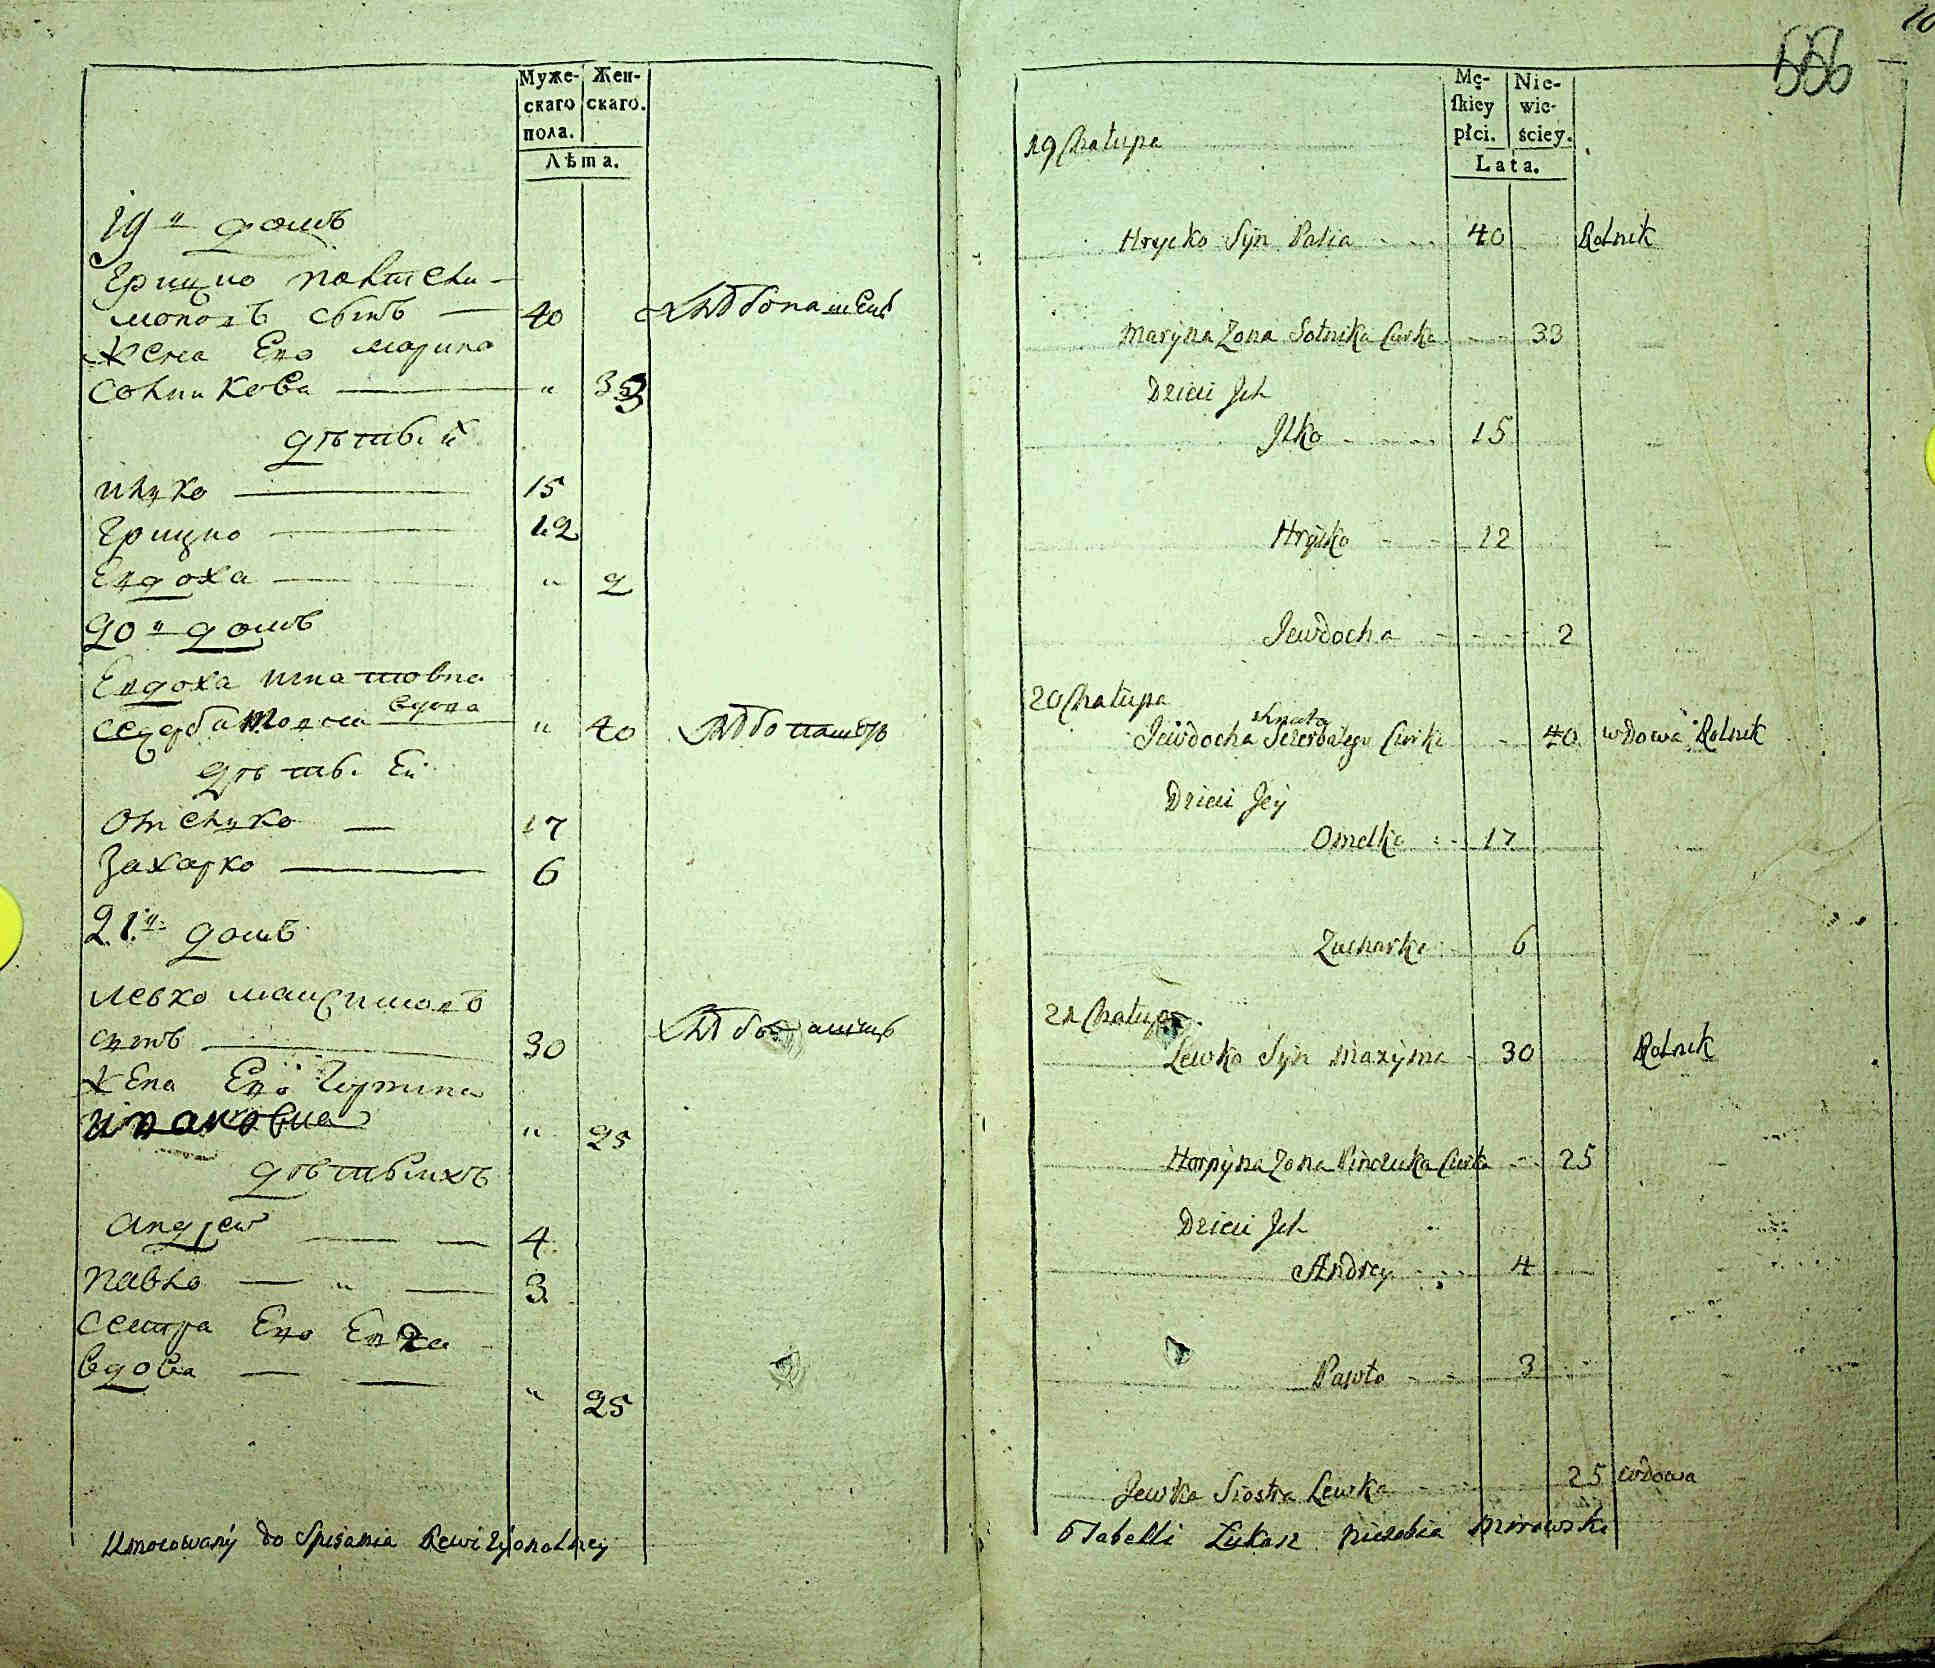 Муже-
скаго
пола.
Жен-
скаго.
Лѣта.
19й домъ
Грицко
сынъ 40
Жена Его Марина
Солникова " 33
дѣти
Илко 15
Грицко 12
Евдоха " 2
20й домъ
Евдоха Игнатовна
вдова " 40
дѣти Ей
Омелко 17
Захарко 6
21й домъ
Левко Максимовъ
сынъ 30
Жена Его Горпина
" 25
дѣти ихъ
Андрей 4
Павло " 3
Сестра Его Евка
вдова " 25
Umocowany do Spisania Rewizyonalney
556
10
Mę-
skiey
płci.
Nie-
wie-
ściey.
Lata.
19 Chałupa
Hrycko Syn Palia 40 Rolnik
Maryna Żona Sołnika Curka 33
Dzieci Jch
Jlko 15
Hryćko 12
Jewdocha 2
20 Chałupa
Jhnata
Jewdocha Szczerbatego Curka 40 wdowa Rolnik
Dzieci Jey
Omelko 17
Zacharko 6
21 Chałupa
Lewko Syn Maxyma 30 Rolnik
Horpyna Żona Pinczuka Curka 25
Dzieci Jch
Andrey 4
Pawło 3
Jewka Siostra Lewka 25 wdowa
Tabelli Łukasz Mirowski